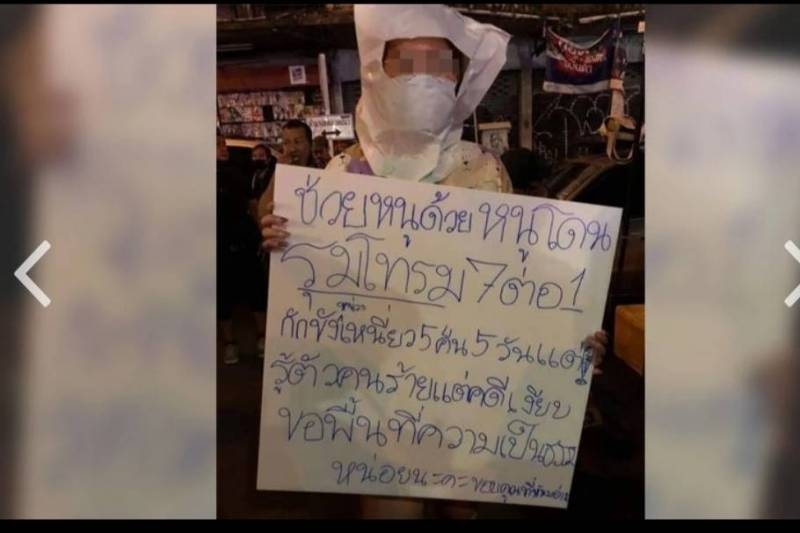 ช่วยหนูด้วยหนูโดน
รุมโทรม 7 ต่อ 1
กักขังหน่วงเหนี่ยว 5 คืน 5 วันแต่
รู้ตัวคนร้ายแต่คดีเงียบ
ขอพื้นที่ความเป็นธรรม
หน่อยนะคะขอบคุณที่